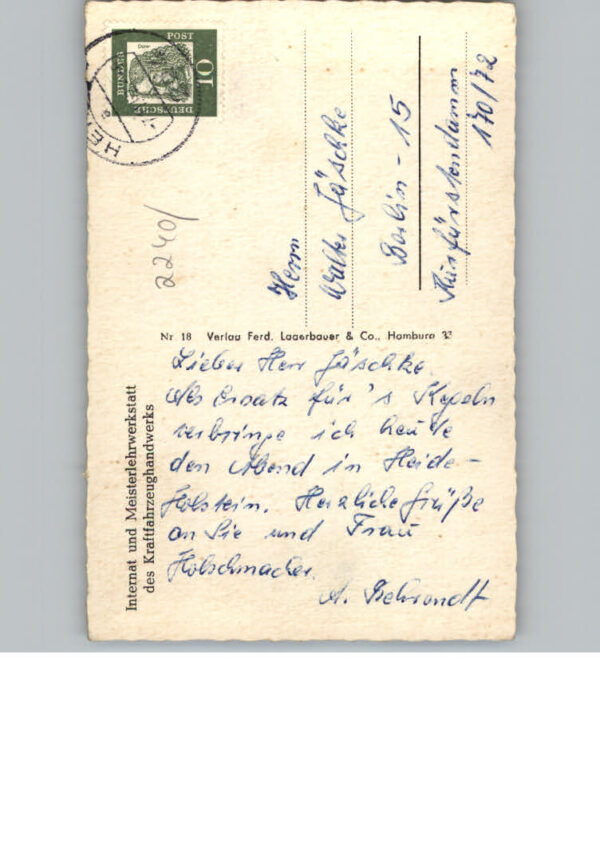 Internat und Meisterlehrwerkstatt
des Kraftfahrzeughandwerks
Lieber Herr Jäschke.
Als Ersatz für's Kegeln
verbringe ich heute
den Abend in Heide-
Holstein. Herzliche Grüße
an Sie und Frau
Holschmacher.
A. Behrendt
Nr 18 Verlag Ferd. Lagerbauer & Co., Hamburg 33
DEUTSCHE
BUNDES
POST
10
Dürer
HEI
2240/
Herrn
Walter Jäschke
Berlin - 15
Kurfürstendamm
170/72